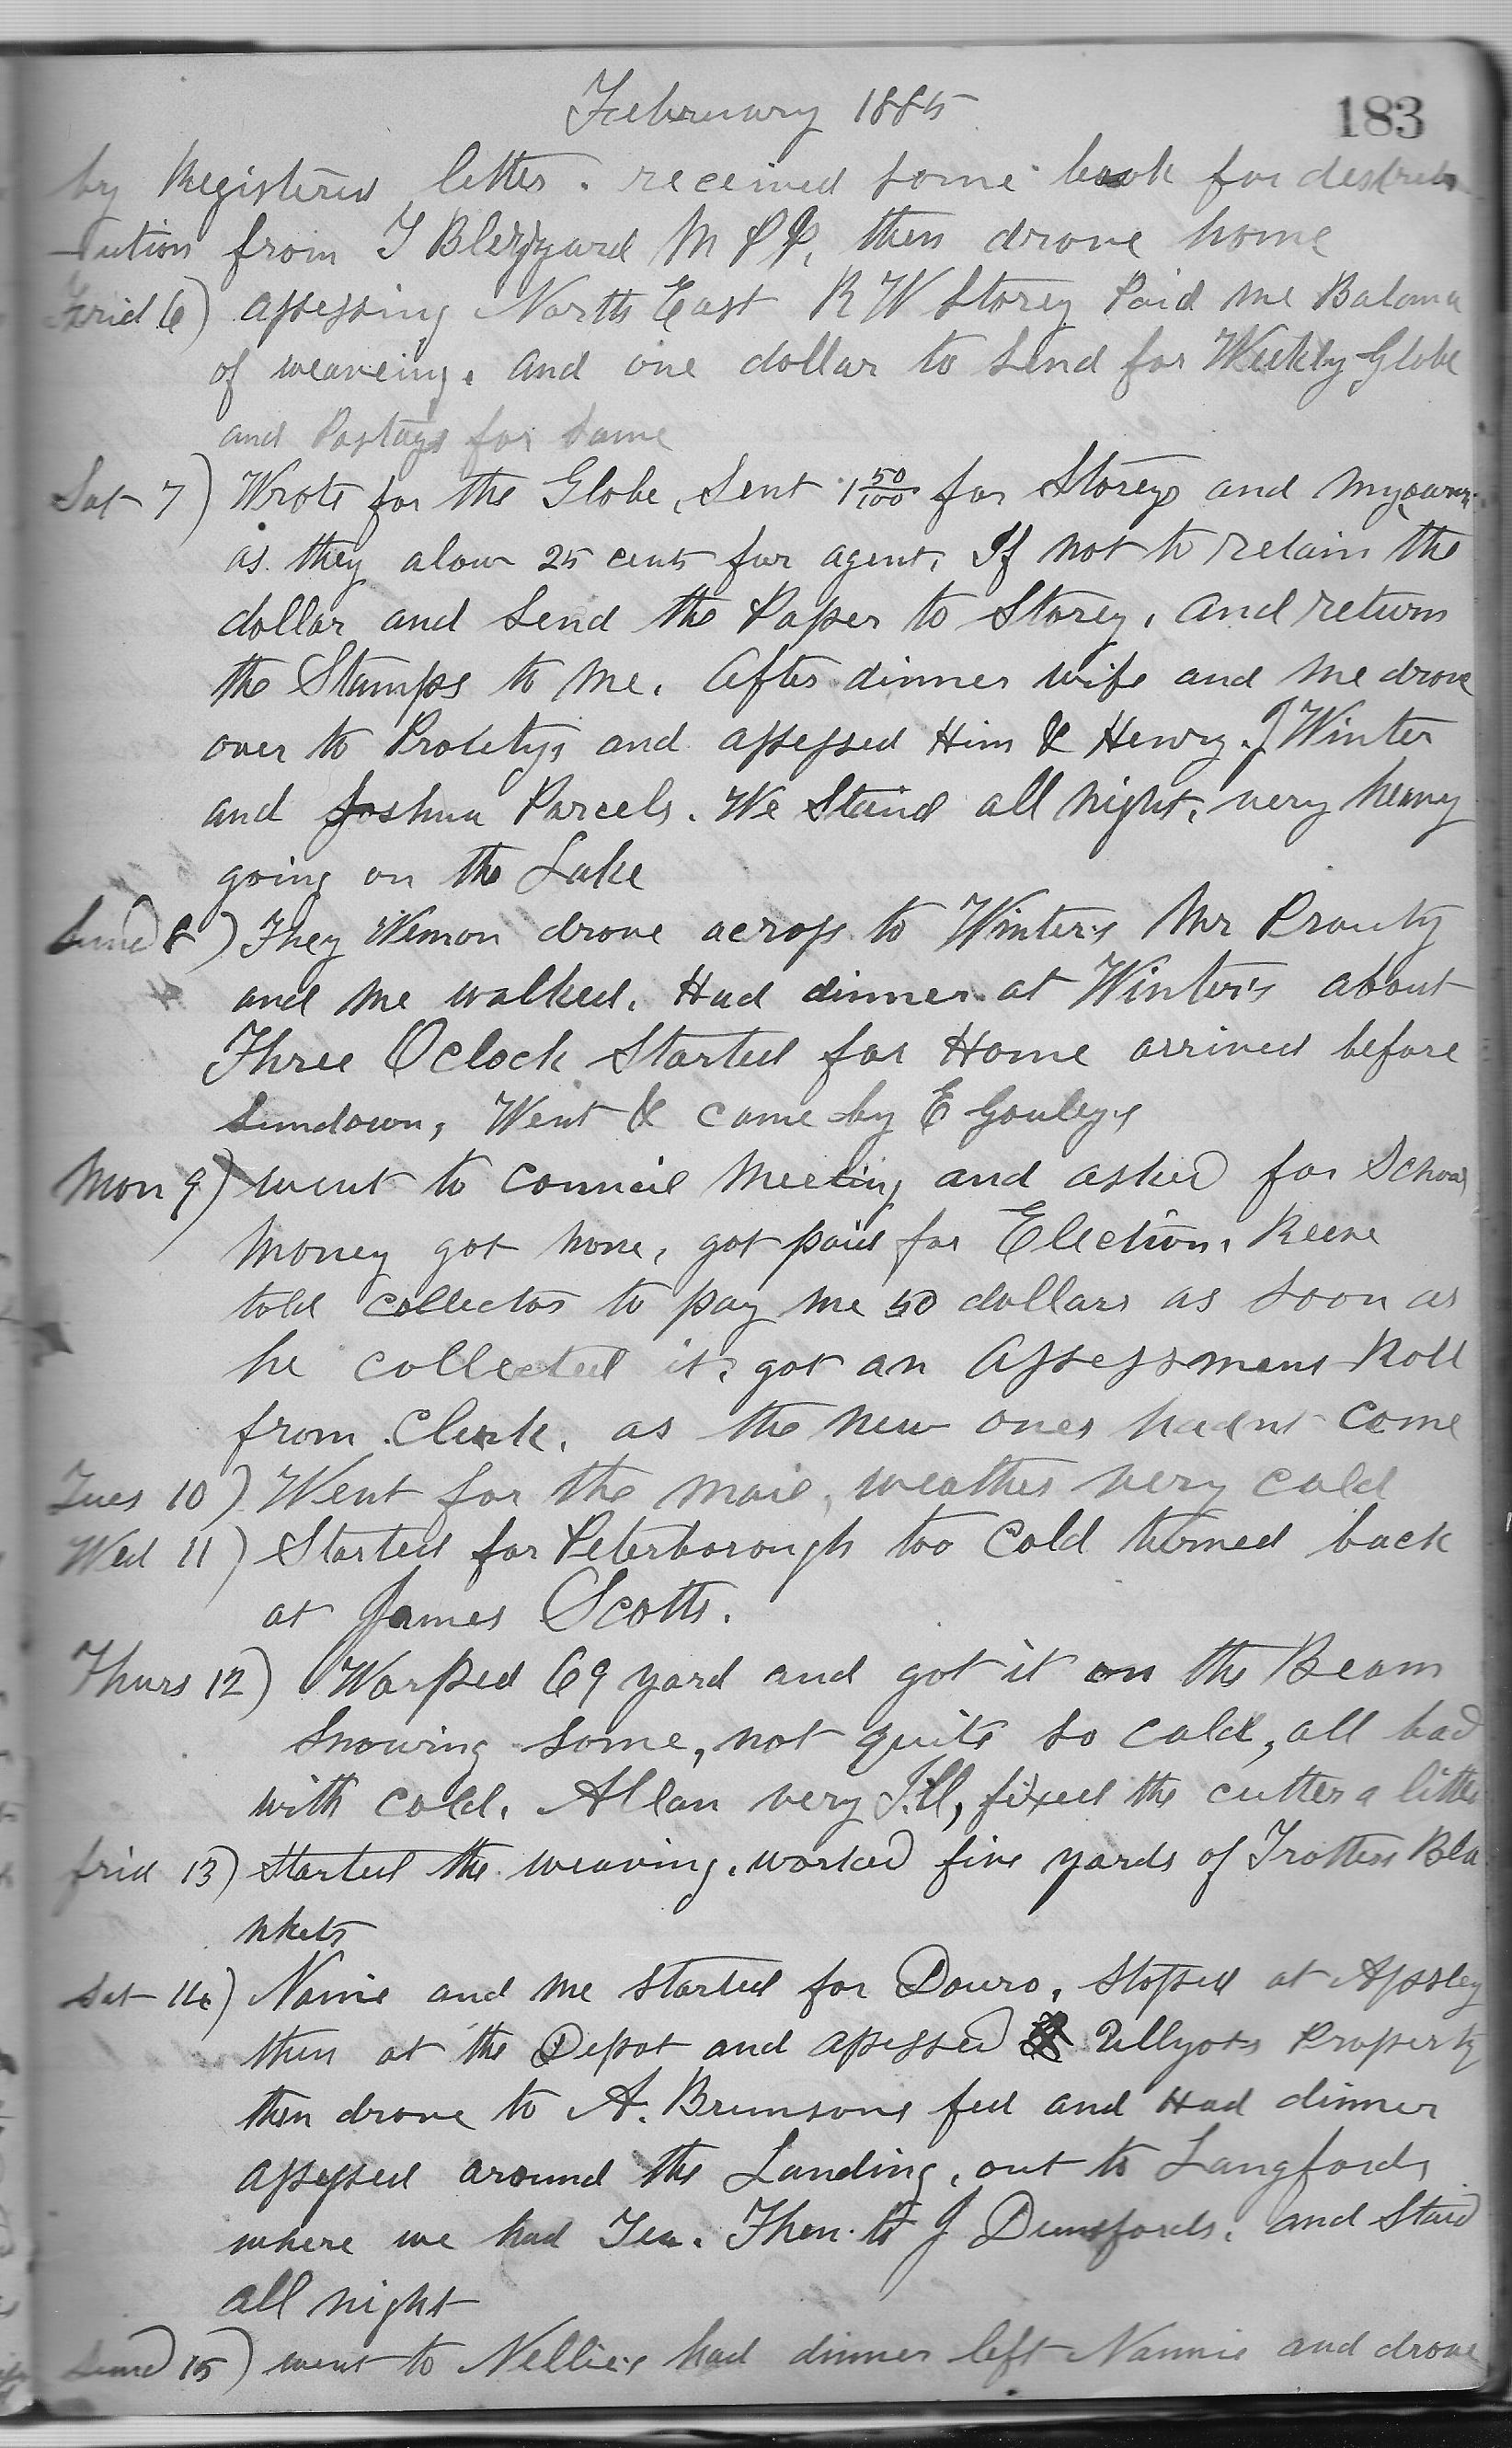 February 1885
183
by Registered letter. received some book for destreb
-ution from T Blezzard M P P, then drove home
Frid 6) assessing North East R W Storey Paid me Balance
of weaveing. and one dollar to Send for Weekly Globe
and Postage for Same
Sat 7) Wrote for the Globe, Sent 1 50/100 for Storeys and my own
as they alow 25 cents for agent, If not to retain the
dollar and Send the Paper to Storey, and return
the Stamps to me. After dinner wife and me drove
over to and assessed Him & Henry. J Winter
and Joshua Parcels. We Staid all night, very heavy
going on the Lake
Sund 8) They Wemon drove across to Winters Mr Prouty
and me walked. Had dinner at Winter's about
Three Oclock Started for Home arrived before
Sundown, Went & came by E Gouleys
Mon 9) went to Council Meeting and asked for School
Money got none, got paid for Election, Reeve
told collector to pay me 50 dollars as Soon as
he collected it, got an Assessment Roll
from Clerk, as the new ones hadnt Come
Tues 10) Went for the mail, weather very cold
Wed 11) Started for Peterborough too Cold turned back
at James Scotts.
Thurs 12) Warped 69 yard and got it on the Beam
Snowing some, not quite so cold, all bad
with cold, Allan very Ill, fixed the cutter a little
frid 13) Started the weaving. worked five yards of Trotters Bla
nkets
Sat 14) Nanie and me started for Douro, Stoped at Apsley
then at the Depot and assessed Property
then drove to A. Brunsons fed and Had dinner
assessed around the Landing, out to Langfords
where we had Tea. Then to J Dunsfords. and Staid
all night
Sund 15) went to Nellie's had dinner left Nannie and drove